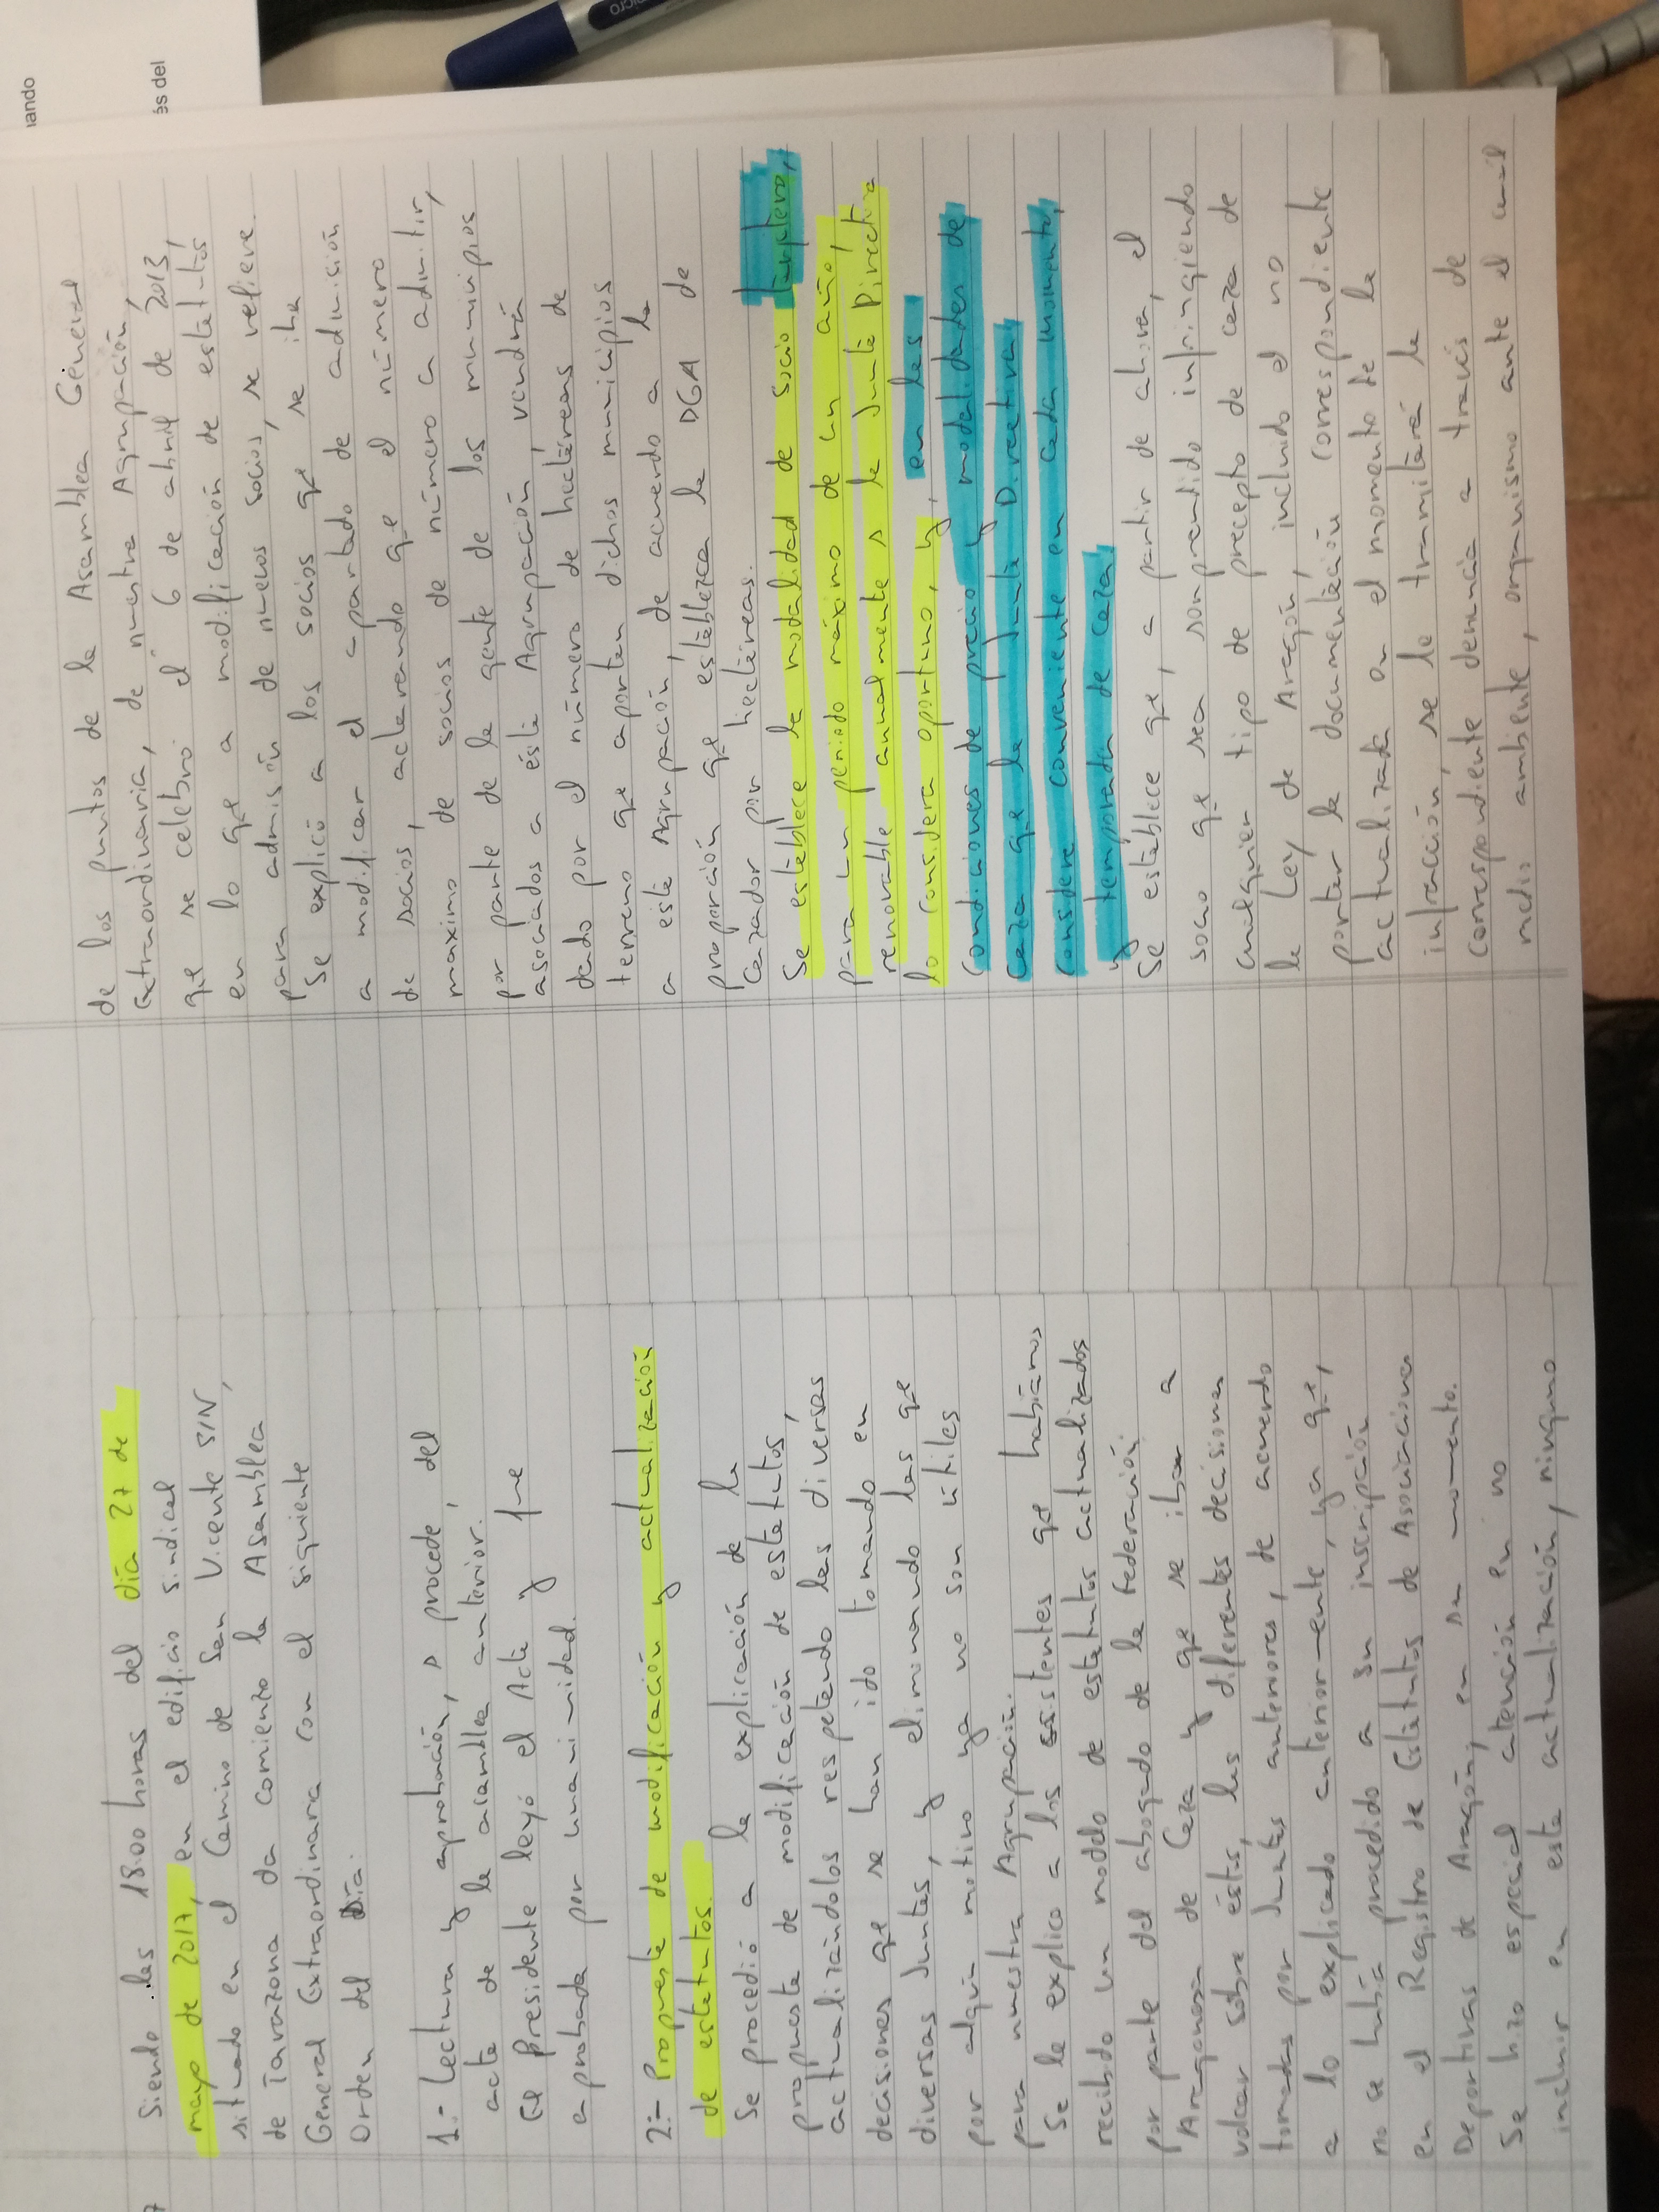 Siendo las 18:00 horas del día 27 de
mayo de 2017, en el edificio sindical
situado en el Camino de San Vicente S/N,
de Tarazona da comienzo la Asamblea
General Extraordinaria con el siguiente
Orden del Día:
1.- Lectura y aprobación, s procede, del
acta de la asamblea anterior.
El Presidente leyó el Acta y fue
aprobada por unanimidad.
2:- Propuesta de modificación y actualización
de estatutos.
Se procedió a la explicación de la
propuesta de modificación de estatutos,
actualizándolos respetando las diversas
decisiones qe se han ido tomando en
diversas Juntas, y eliminando las qe
por algún motivo ya no son útiles
para nuestra Agrupación.
Se le explico a los asistentes qe habíamos
recibido un modelo de estatutos actualizados
por parte del abogado de la Federación
Aragonesa de Caza y qe se iban a
volcar sobre éstos, las diferentes decisiones
tomadas por Juntas anteriores, de acuerdo
a lo explicado anteriormente, ya qe,
no se había procedido a su inscripción
en el Registro de Estatutos de Asociaciones
Deportivas de Aragón, en su momento.
Se hizo especial atención en no
incluir en esta actualización, ninguno
de los puntos de la Asamblea General
Extraordinaria, de nuestra Agrupación,
qe se celebró el 6 de abril de 2013,
en lo qe a modificación de estatutos
para admisión de nuevos socios, se refiere.
Se explicó a los socios qe se iba
a modificar el apartado de admisión
de socios, aclarando qe el número
maximo de socios de número a admitir,
por parte de la gente de los municipios
asociados a ésta Agrupación, vendrá
dado por el número de hectáreas de
terreno qe aporten dichos municipios
a esta Agrupación, de acuerdo a la
proporción qe establezca la DGA de
cazador por hectáreas.
Se establece la modalidad de socio tarjetero,
para un periodo máximo de un año,
renovable anualmente s la Junta Directiva
lo considera oportuno, y, en las
condiciones de precio y modalidades de
caza qe la Junta Directiva,
considere conveniente en cada momento,
y temporada de caza.
Se establece qe, a partir de ahora, el
socio qe sea sorprendido infringiendo
cualquier tipo de precepto de caza de
la Ley de Aragón, incluido el no
portar la documentación correspondiente
actualizada en el momento de la
infracción, se le tramitará la
correspondiente denuncia a través de
medio ambiente, organismo ante el cual